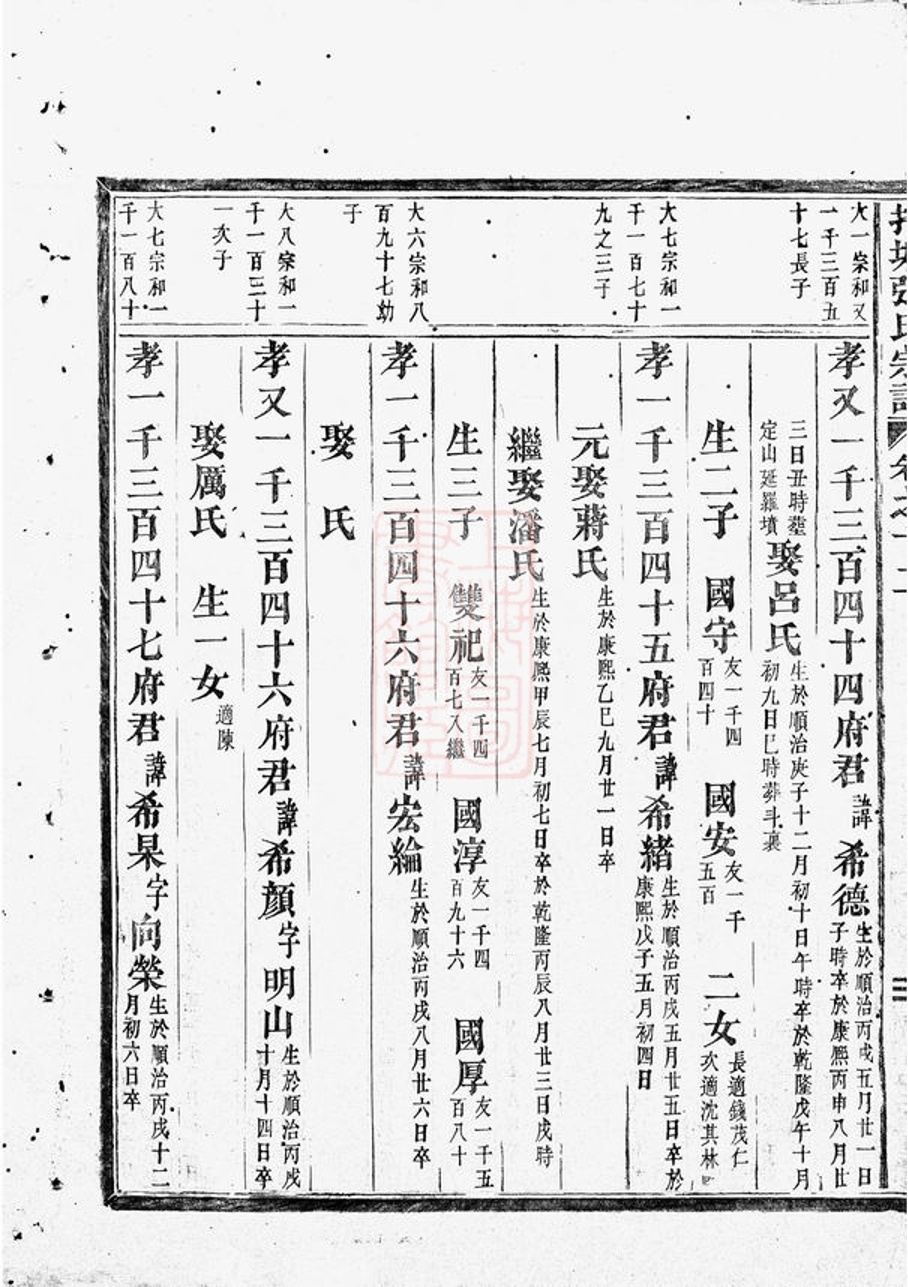 張氏宗譜 卷之十二
大一宗和又
一千三百五
十七長子
孝又一千三百四十四府君諱希德生於順治丙戌五月廿一日
子時卒於康熙丙申八月廿
三日丑時塟
定山延羅墳
娶呂氏生於順治庚子十二月初十日午時卒於乾隆戊午十月
初九日巳時葬斗裏
生二子 國守友一千四
百四十
國安友一千
五百
二女長適錢茂仁
次適沈其林
大七宗和一
千一百七十
九之三子
孝一千三百四十五府君諱希緒生於順治丙戌五月廿五日卒於
康熙戊子五月初四日
元娶蔣氏生於康熙乙巳九月廿一日卒
繼娶潘氏生於康熙甲辰七月初七日卒於乾隆丙辰八月廿三日戌時
生三子 雙祀友一千四
百七入繼
國淳友一千四
百九十六
國厚友一千五
百八十
大六宗和八
百九十七幼
子
孝一千三百四十六府君諱宏綸生於順治丙戌八月廿六日卒
娶 氏
大八宗和一
千一百三十
一次子
孝又一千三百四十六府君諱希顏字明山生於順治丙戌
十月十四日卒
娶厲氏 生一女適陳
大七宗和一
千一百八十
孝一千三百四十七府君諱希杲字向榮生於順治丙戌十二
月初六日卒